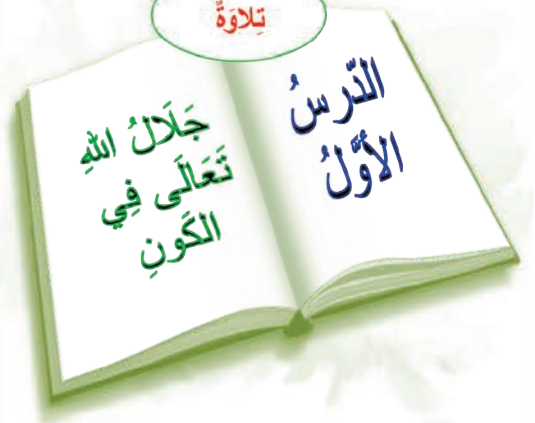 تِلاوَةٌ
الدّرسُ
الأوَّلُ
جَلَالُ اللهِ
تَعَالَى فِي
الكَونِ